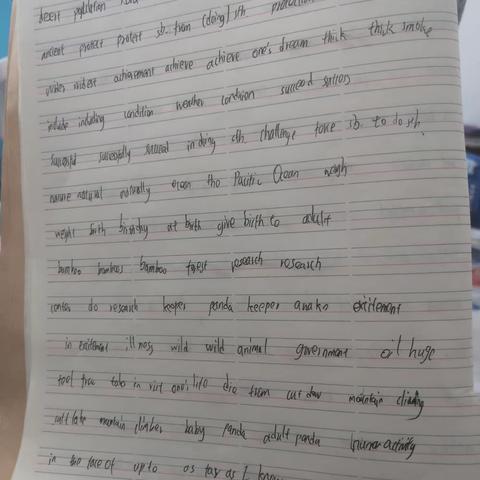 desert population
ancient protect protect sb. from (doing) sth
wider widest achievement achieve achieve one's dream thick thick smoke
include including condition weather condition succeed success
successful successfully succeed in doing sth challenge force sb. to do sth.
nature natural naturally ocean the Pacific Ocean weigh
weight birth birthday at birth give birth to adult
bamboo bamboos bamboo forest research research
center do research keeper panda keeper awake exitement
in exitement illness wild wild animal government oil huge
die from cut down mountain climbing
mountain climber baby panda adult panda human activity
in the face of up to as far as I know